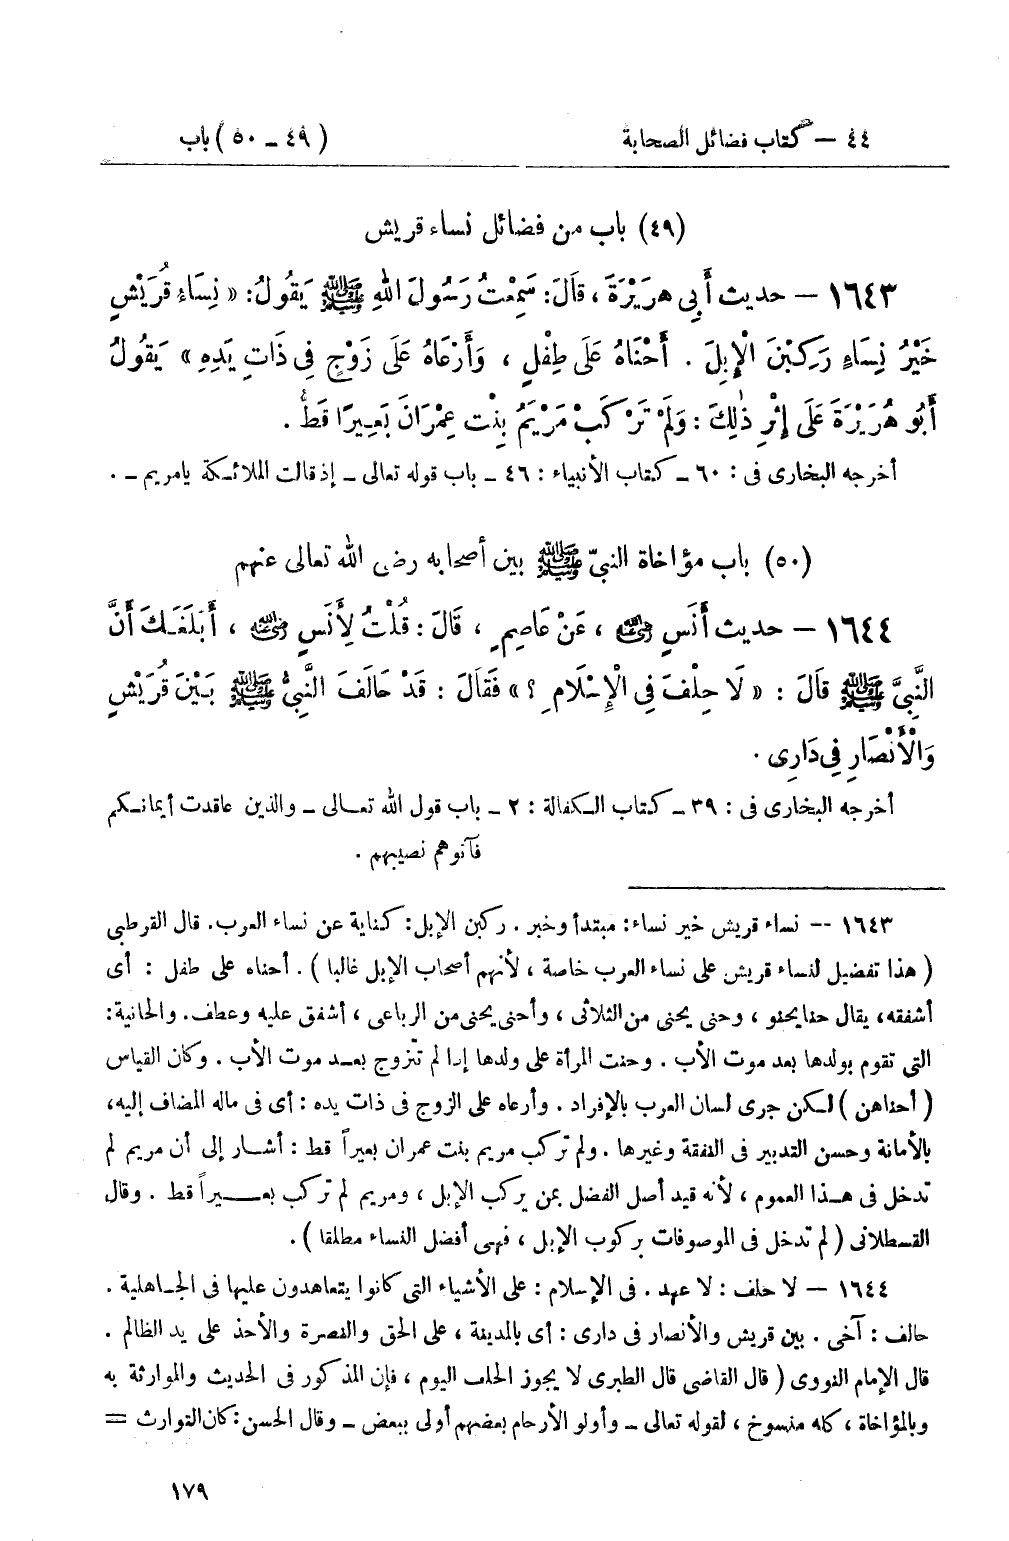 ٤٤ — كتاب فضائل الصحابة (٤٩ ـ ٥٠) باب
(٤٩) باب من فضائل نساء قريش
١٦٤٣ — حديث أَبِى هُرَيْرَةَ ، قَالَ: سَمِعْتُ رَسُولَ اللهِ ﷺ يَقُولُ: « نِسَاءُ قُرَيْشٍ
خَيْرُ نِسَاءٍ رَكِبْنَ الْإِبِلَ . أَحْنَاهُ عَلَى طِفْلٍ ، وَأَرْعَاهُ عَلَى زَوْجٍ فِى ذَاتِ يَدِهِ » يَقُولُ
أَبُو هُرَيْرَةَ عَلَى إِثْرِ ذٰلِكَ : وَلَمْ تَرْكَبْ مَرْيَمُ بِنْتُ عِمْرَانَ بَعِيرًا قَطُّ .
أخرجه البخارى فى : ٦٠ ـ كتاب الأنبياء : ٤٦ ـ باب قوله تعالى ـ إذ قالت الملائكة يامريم ـ .
(٥٠) باب مؤاخاة النبىّ ﷺ بين أصحابه رضى الله تعالى عنهم
١٦٤٤ — حديث أَنَسٍ رضي الله عنه ، عَنْ عَاصِمٍ ، قَالَ : قُلْتُ لِأَنَسٍ رضي الله عنه ، أَبَلَغَكَ أَنَّ
النَّبِيَّ ﷺ قَالَ : « لَا حِلْفَ فِى الْإِسْلَامِ ؟ » فَقَالَ : قَدْ حَالَفَ النَّبِيُّ ﷺ بَيْنَ قُرَيْشٍ
وَالْأَنْصَارِ فِى دَارِى .
أخرجه البخارى فى : ٣٩ ـ كتاب الكفالة : ٢ ـ باب قول الله تعالى ـ والذين عاقدت أيمانكم
فآتوهم نصيبهم .
١٦٤٣ -- نساء قريش خير نساء: مبتدأ وخبر . ركبن الإبل: كناية عن نساء العرب. قال القرطبى
( هذا تفضيل لنساء قريش على نساء العرب خاصة ، لأنهم أصحاب الإبل غالبا ) . أحناه على طفل : أى
أشفقه، يقال حنا يحنو ، وحنى يحنى من الثلاثى ، وأحنى يحنى من الرباعى ، أشفق عليه وعطف. والحانية:
التى تقوم بولدها بعد موت الأب . وحنت المرأة على ولدها إذا لم تتزوج بعد موت الأب . وكان القياس
( أحناهن ) لكن جرى لسان العرب بالإفراد . وأرعاه على الزوج فى ذات يده : أى فى ماله المضاف إليه،
بالأمانة وحسن التدبير فى النفقة وغيرها . ولم تركب مريم بنت عمران بعيراً قط : أشار إلى أن مريم لم
تدخل فى هذا العموم ، لأنه قيد أصل الفضل بمن يركب الإبل ، ومريم لم تركب بعيراً قط . وقال
القسطلانى ( لم تدخل فى الموصوفات بركوب الإبل ، فهى أفضل النساء مطلقا ) .
١٦٤٤ — لا حلف : لا عهد . فى الإسلام : على الأشياء التى كانوا يتعاهدون عليها فى الجاهلية .
حالف : آخى . بين قريش والأنصار فى دارى : أى بالمدينة ، على الحق والنصرة والأخذ على يد الظالم .
قال الإمام النووى ( قال القاضى قال الطبرى لا يجوز الحلف اليوم ، فإن المذكور فى الحديث والموارثة به
وبالمؤاخاة ، كله منسوخ ، لقوله تعالى ـ وأولو الأرحام بعضهم أولى ببعض ـ وقال الحسن : كان التوارث =
١٧٩